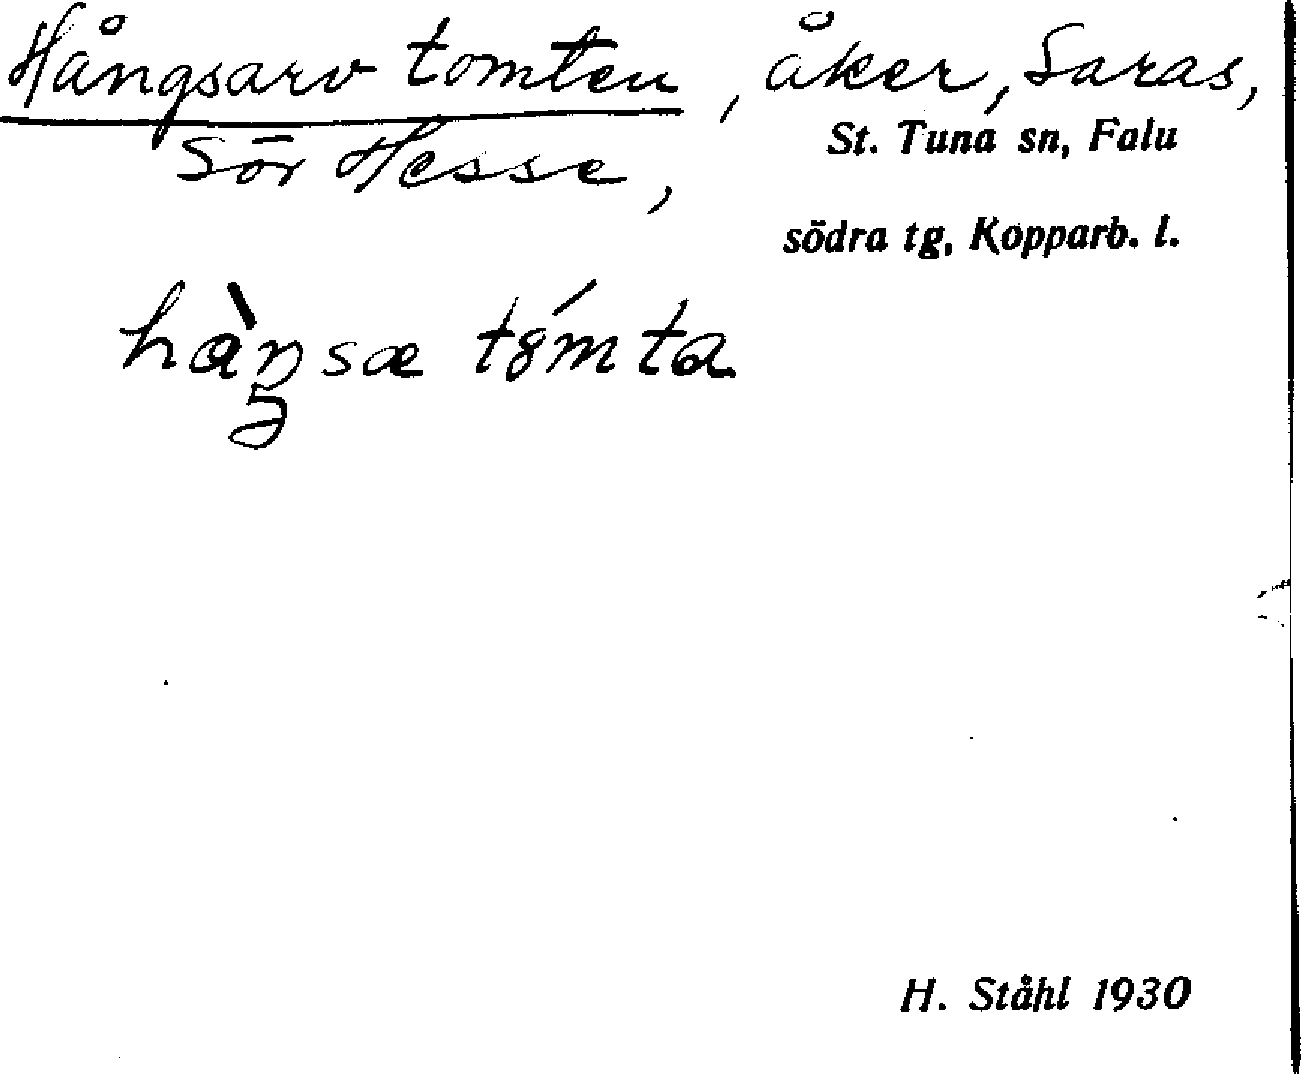 Hångsarv tomten, åker, Saras,
Sör Hesse,
St. Tuna sn, Falu
södra tg, Kopparb. l.
hàŋsæ tȣ́mta
H. Ståhl 1930